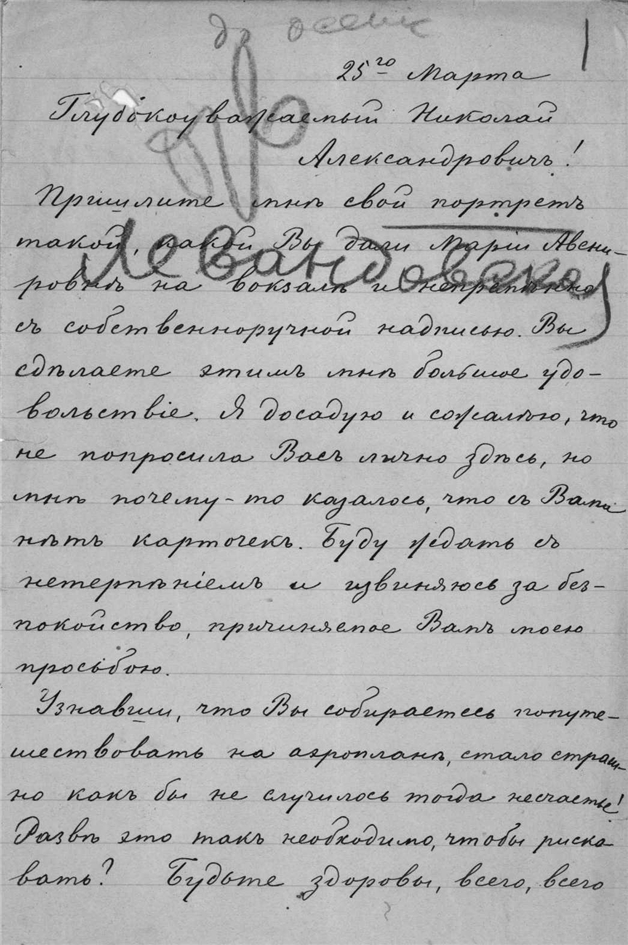 до осени
1
25го Марта
Глубокоуважаемый Николай
Александровичъ!
Пришлите мнѣ свой портретъ
такой, какой Вы дали Маріи Авени-
Левандовской
ровнѣ на вокзалѣ и непремѣнно
съ собственноручной надписью. Вы
сдѣлаете этимъ мнѣ большое удо-
вольствіе. Я досадую и сожалѣю, что
не попросила Васъ лично здѣсь, но
мнѣ почему-то казалось, что съ Вами
нѣтъ карточекъ. Буду ждать съ
нетерпѣніемъ и извиняюсь за без-
покойство, причиняемое Вамъ моею
просьбою.
Узнавши, что Вы собираетесь попуте-
шествовать на аэропланѣ, стало страш-
но какъ бы не случилось тогда несчастье!
Развѣ это такъ необходимо, чтобы риско
вать? Будьте здоровы, всего, всего